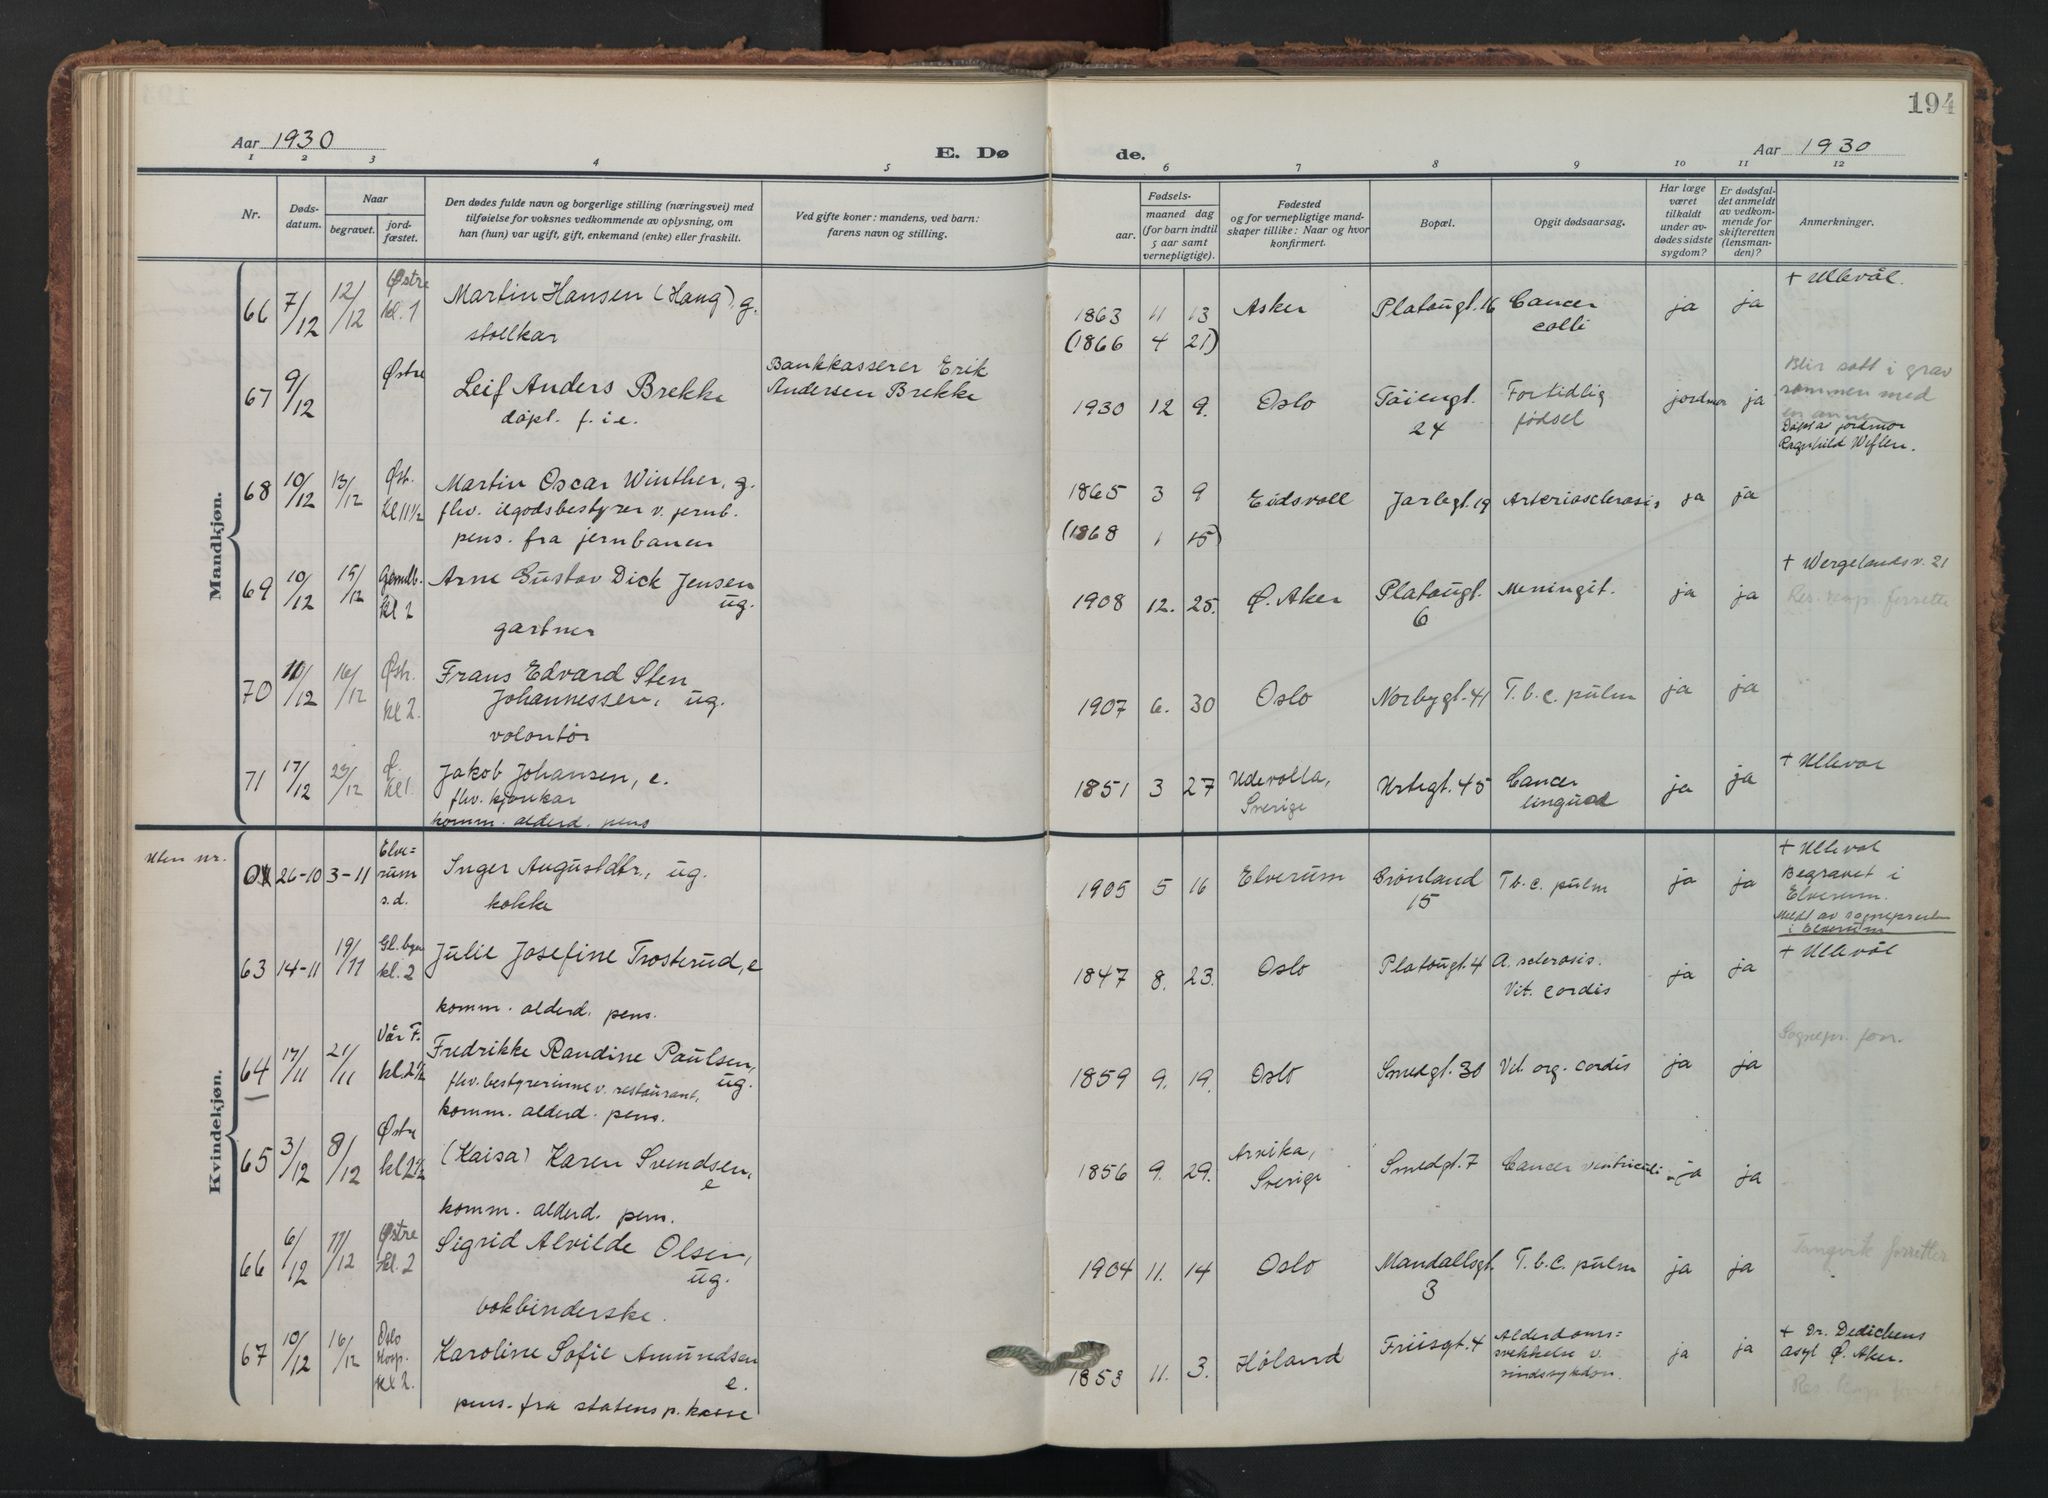 194
Aar 1930
E. Dø
de.
Aar 1930
1 2 3 4 5 6 7 8 9 10 11 12
Nr.
Døds-
datum.
Naar
begravet.
jord-
fæstet.
Den dødes fulde navn og borgerlige stilling (næringsvei) med
tilføielse for voksnes vedkommende av oplysning, om
han (hun) var ugift, gift, enkemand (enke) eller fraskilt.
Ved gifte koner: mandens, ved barn:
farens navn og stilling.
Fødsels-
aar.
maaned dag
(for barn indtil
5 aar samt
vernepligtige).
Fødested
og for vernepligtige mand-
skaper tillike: Naar og hvor
konfirmert.
Bopæl.
Opgit dødsaarsag.
Har læge
været
tilkaldt
under av-
dødes sidste
sygdom?
Er dødsfal-
det anmeldt
av vedkom-
mende for
skifteretten
(lensman-
den)?
Anmerkninger.
Mandkjøn.
66 7/12 12/12 Østre kl. 1 Martin Hansen (Haug), g. 1863 11 13 Asker Platougt. 16 Cancer ja ja + Ullevål.
stallkar (1866 4 21) colli
67 9/12 Østre Leif Anders Brekke Bankkasserer Erik
Andersen Brekke 1930 12 9. Oslo Tøiengt. Fortidlig jordmor ja Blir satt i grav
døpt. f. i e. 24 fødsel sammen med
en annen
Døpt av jordmor
Ragnhild Weflen.
68 10/12 13/12 Østr. kl 11½ Martin Oscar Winther, g. 1865 3 9 Eidsvoll Jarlegt. 19 Arteriosclerosis ja ja
fhv. ilgodsbestyrer v. jernb. (1868 1 15)
pens. fra jernbanen
69 10/12 15/12 Gamleb. kl 2 Arne Gustav Dick Jensen 1908 12. 25. Ø. Aker Platougt. Meningit. ja ja + Wergelandsv. 21
ug. 6 Res. kap. forrette
gartner
70 10/12 16/12 Østr. kl 2. Frans Edvard Sten 1907 6. 30 Oslo Norbygt. 41 T. b. c. pulm ja ja
Johannessen, ug.
volontør
71 17/12 23/12 Ø. kl 1. Jakob Johansen, e. 1851 3 27 Udevalla, Urtegt. 45 Cancer ja ja + Ullevål
fhv. kjørekar Sverige linguae
komm. alderd. pens
Kvindekjøn.
Uten nr. 26-10 3-11 Elve=
rum
s.d. Inger Augustdtr., ug. 1905 5 16 Elverum Grønland T b. c. pulm ja ja + Ullevål
kokke 15 Begravet i
Elverum.
Meldt av sognepresten
i Elverum
63 14-11 19/11 Gl. byen kl. 2 Julie Josefine Trosterud, e 1847 8. 23. Oslo Platougt. 4 A. sclerosis. ja ja + Ullevål
komm. alderd. pens. Vit. cordis
64 17/11 21/11 Vår F. kl. 2½ Fredrikke Randine Paulsen, 1859 9. 19. Oslo Smedgt. 30 Vit. org. cordis ja ja Sognepr. forr.
ug.
fhv. bestyrerinne v. restaurant,
komm. alderd. pens.
65 3/12 8/12 Østre kl 2½ (Kaisa) Karen Svendsen, 1856 9. 29. Arvika, Smedgt. 7 Cancer ventriculi ja ja
e Sverige
komm. alderd. pens.
66 6/12 11/12 Østre kl. 2 Sigrid Alvilde Olsen, 1904 11. 14 Oslo Mandallsgt. T. b. c. pulm ja ja Tangvik forretter
ug. 3
bokbinderske.
67 10/12 16/12 Oslo
Hosp.
kl 2. Karoline Sofie Amundsen 1853 11. 3. Høland Friisgt. 4 Alderdoms= ja ja + Dr. Dedichens
e. svekkelse v. Asyl Ø. Aker.
pens. fra statens p. kasse sindssykdom. Res. kap.